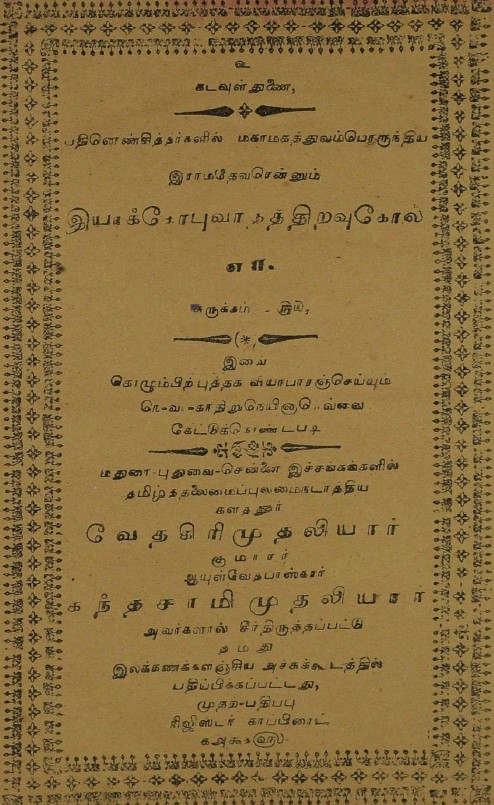 உ
கடவுள் துணை,
பதினெண்சித்தர்களில் மகாமகத்துவம்பொருந்திய
இராமதேவசென்னும்
இயாக்கோபுவாதத்திறவுகோல்
எ ா.
சுருக்கம் -
இவை
கொழும்பிற்புத்தக வியாபாரஞ்செய்யும்
கேட்டுக்கொண்டபடி
மதுரை-புதுவை-சென்னை இச்சங்கங்களில்
தமிழ்த்தலைமைப்புலமைநடாத்திய
களத்தூர்
வேதகிரிமுதலியார்
குமாரர்
ஆயுள்வேதபாஸ்கார்
கந்தசாமிமுதலியார்
அவர்களால் சீர்திருத்தப்பட்டு
தமது
இலக்கணக்களஞ்சிய அச்சுக்கூடத்தில்
பதிப்பிக்கப்பட்டது,
முதற்-பதிப்பு
ரிஜிஸ்டர் காப்பிரைட்